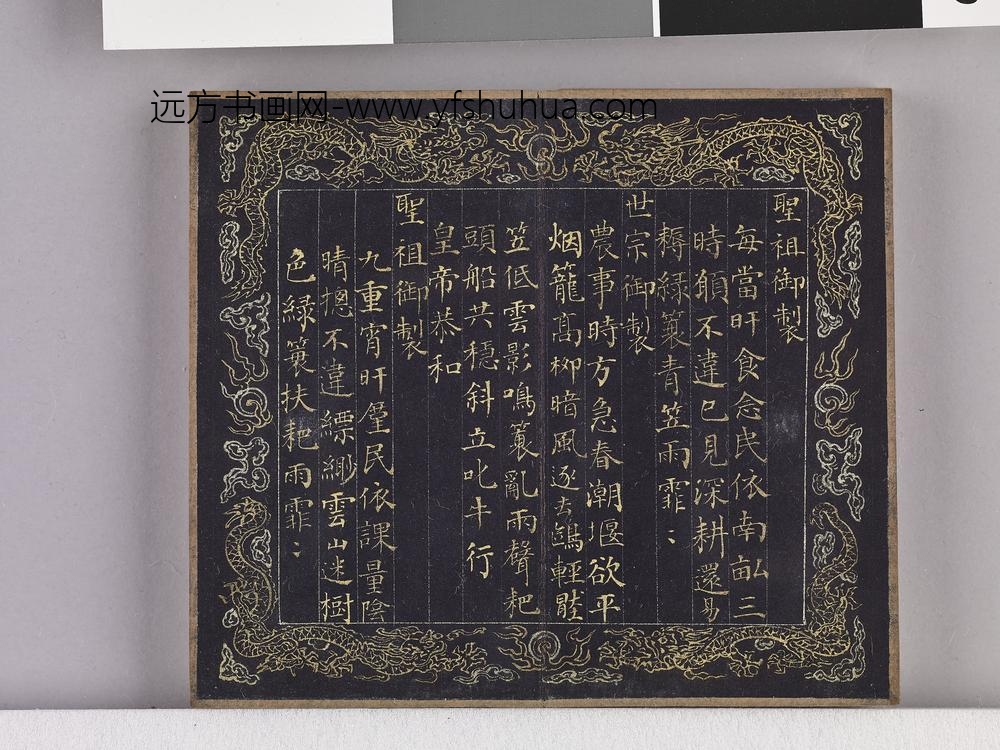 远方书画网-www.yfshuhua.com
聖祖御製
每當旰食念民依南畝三
時願不違已見深耕還易
耨綠簑青笠雨霏〻
世宗御製
農事時方急春潮堰欲平
烟籠髙栁暗風逐去鷁輕
笠低雲影鳴簑亂雨聲耙
頭船共穩斜立叱牛行
皇帝恭和
聖祖御製
九重宵旰厪民依課量陰
晴揔不違縹緲雲山迷樹
色綠簑扶耙雨霏〻